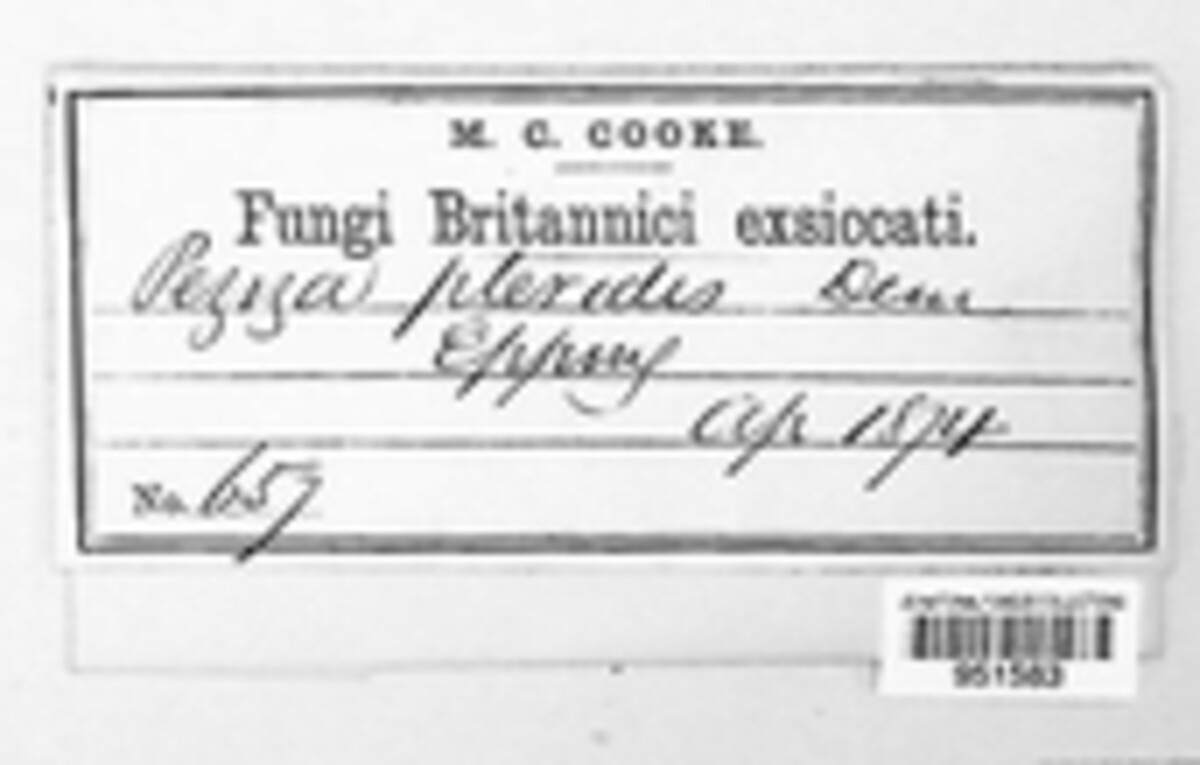 M. C. COOKE.
Fungi Britannici exsiccati.
Peziza pteridis
Epping
Ap 1874
No. 657
951583